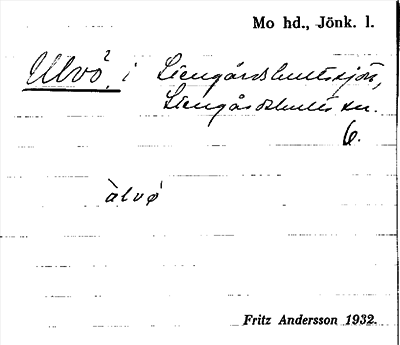 Mo hd., Jönk. l.
Ulvö? i Stengårdshultasjön,
Stengårdshults sn.
6.
àlvö
Fritz Andersson 1932.